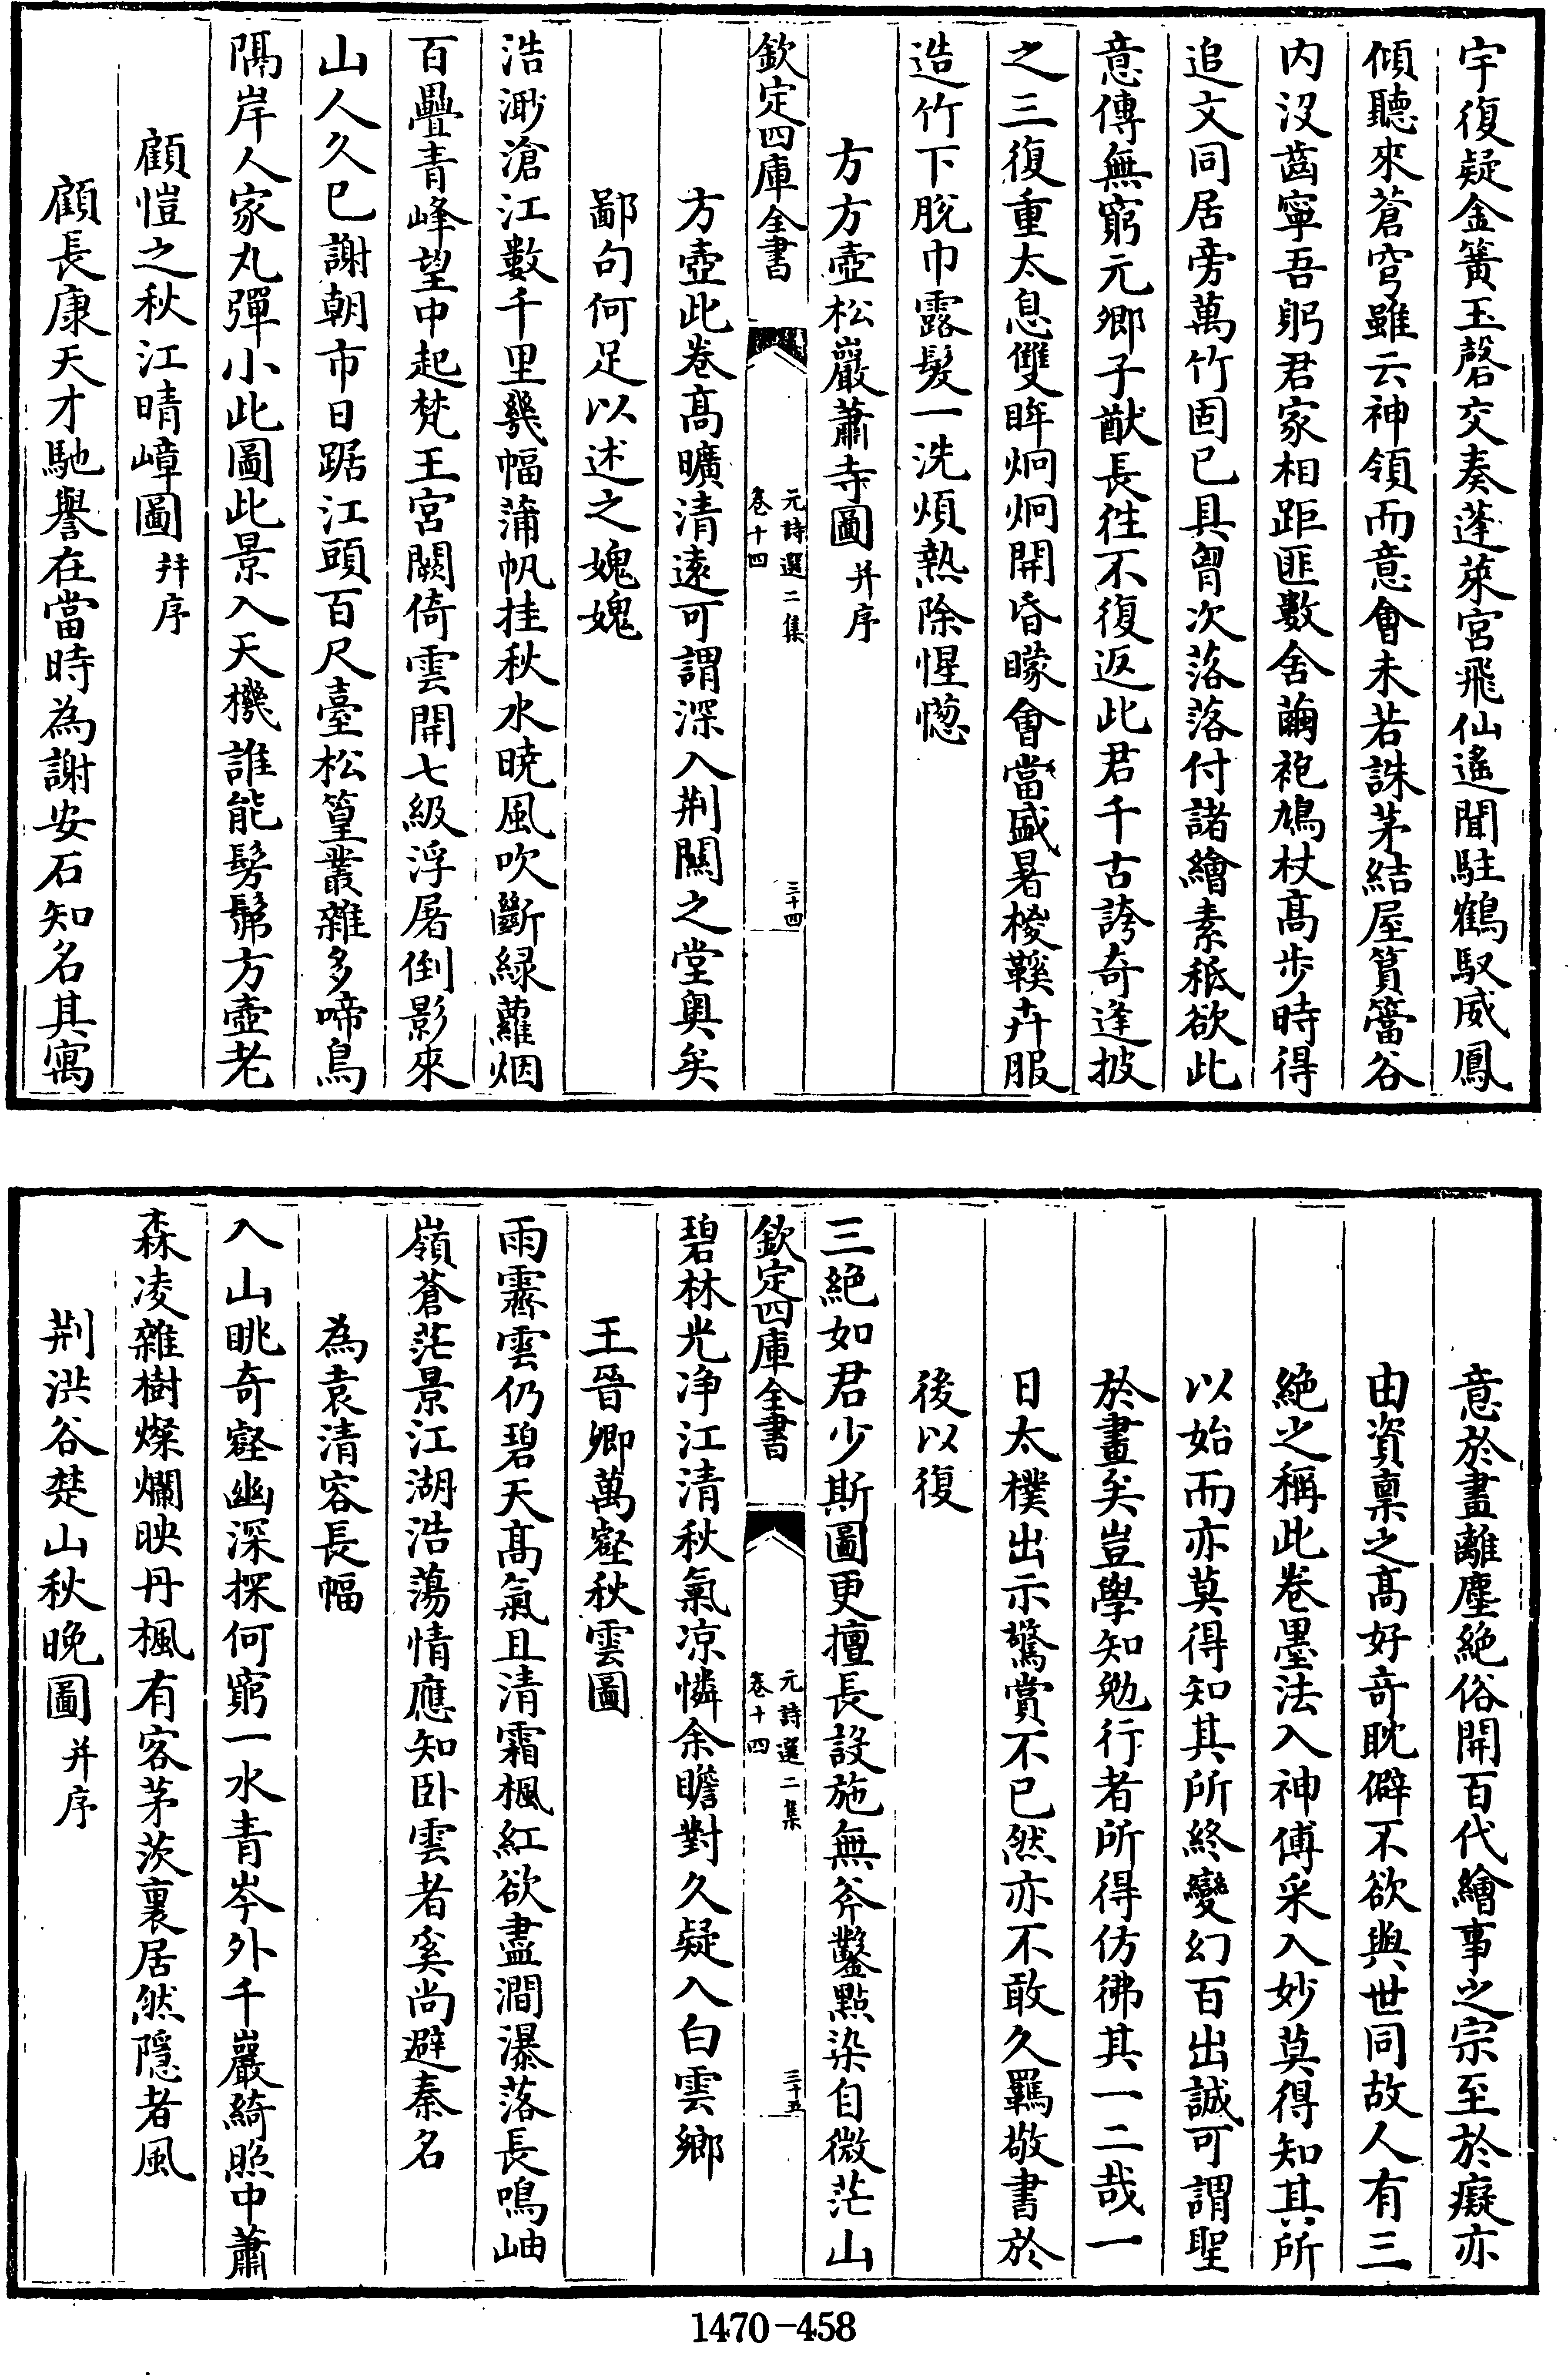 宇復疑金簧玉磬交奏蓬萊宮飛仙遙聞駐鶴馭威鳳
傾聽來蒼穹雖云神領而意會未若誅茅結屋篔簹谷
内没齒寧吾躬君家相距匪數舍繭袍鳩杖髙步時得
追文同居旁萬竹固已具胷次落落付諸繪素秖欲此
意傳無窮元卿子猷長往不復返此君千古誇奇逢披
之三復重太息雙眸炯炯開昏曚會當盛暑椶鞵卉服
造竹下脱巾露髮一洗煩熱除惺憁
方方壺松巖蕭寺圖并序
欽定四庫全書
元詩選二集
卷十四
三十四
方壺此卷髙曠清遠可謂深入荆關之堂奥矣
鄙句何足以述之媿媿
浩渺滄江數千里幾幅蒲帆挂秋水暁風吹斷緑蘿烟
百疊青峰望中起梵王宮闕倚雲開七級浮屠倒影來
山人久已謝朝市日踞江頭百尺臺松篁叢雜多啼鳥
隔岸人家丸彈小此圖此景入天機誰能髣髴方壺老
顧愷之秋江晴嶂圖并序
顧長康天才馳譽在當時為謝安石知名其寓
意於畫離塵絶俗開百代繪事之宗至於癡亦
由資稟之髙好竒耽僻不欲與世同故人有三
絶之稱此卷墨法入神傅采入妙莫得知其所
以始而亦莫得知其所終變幻百出誠可謂聖
於畫矣豈學知勉行者所得仿彿其一二哉一
日太樸出示驚賞不已然亦不敢久羈敬書於
後以復
三絶如君少斯圖更擅長設施無斧鑿點染自微茫山
欽定四庫全書
元詩選二集
卷十四
三十五
碧林光净江清秋氣凉憐余瞻對久疑入白雲鄉
王晉卿萬壑秋雲圖
雨霽雲仍碧天髙氣且清霜楓紅欲盡澗瀑落長鳴岫
嶺蒼茫景江湖浩蕩情應知卧雲者奚尚避秦名
為袁清容長幅
入山眺奇壑幽深探何窮一水青岑外千巖綺照中蕭
森凌雜樹燦爛映丹楓有客茅茨裏居然隱者風
荆洪谷楚山秋晚圖并序
1470-458